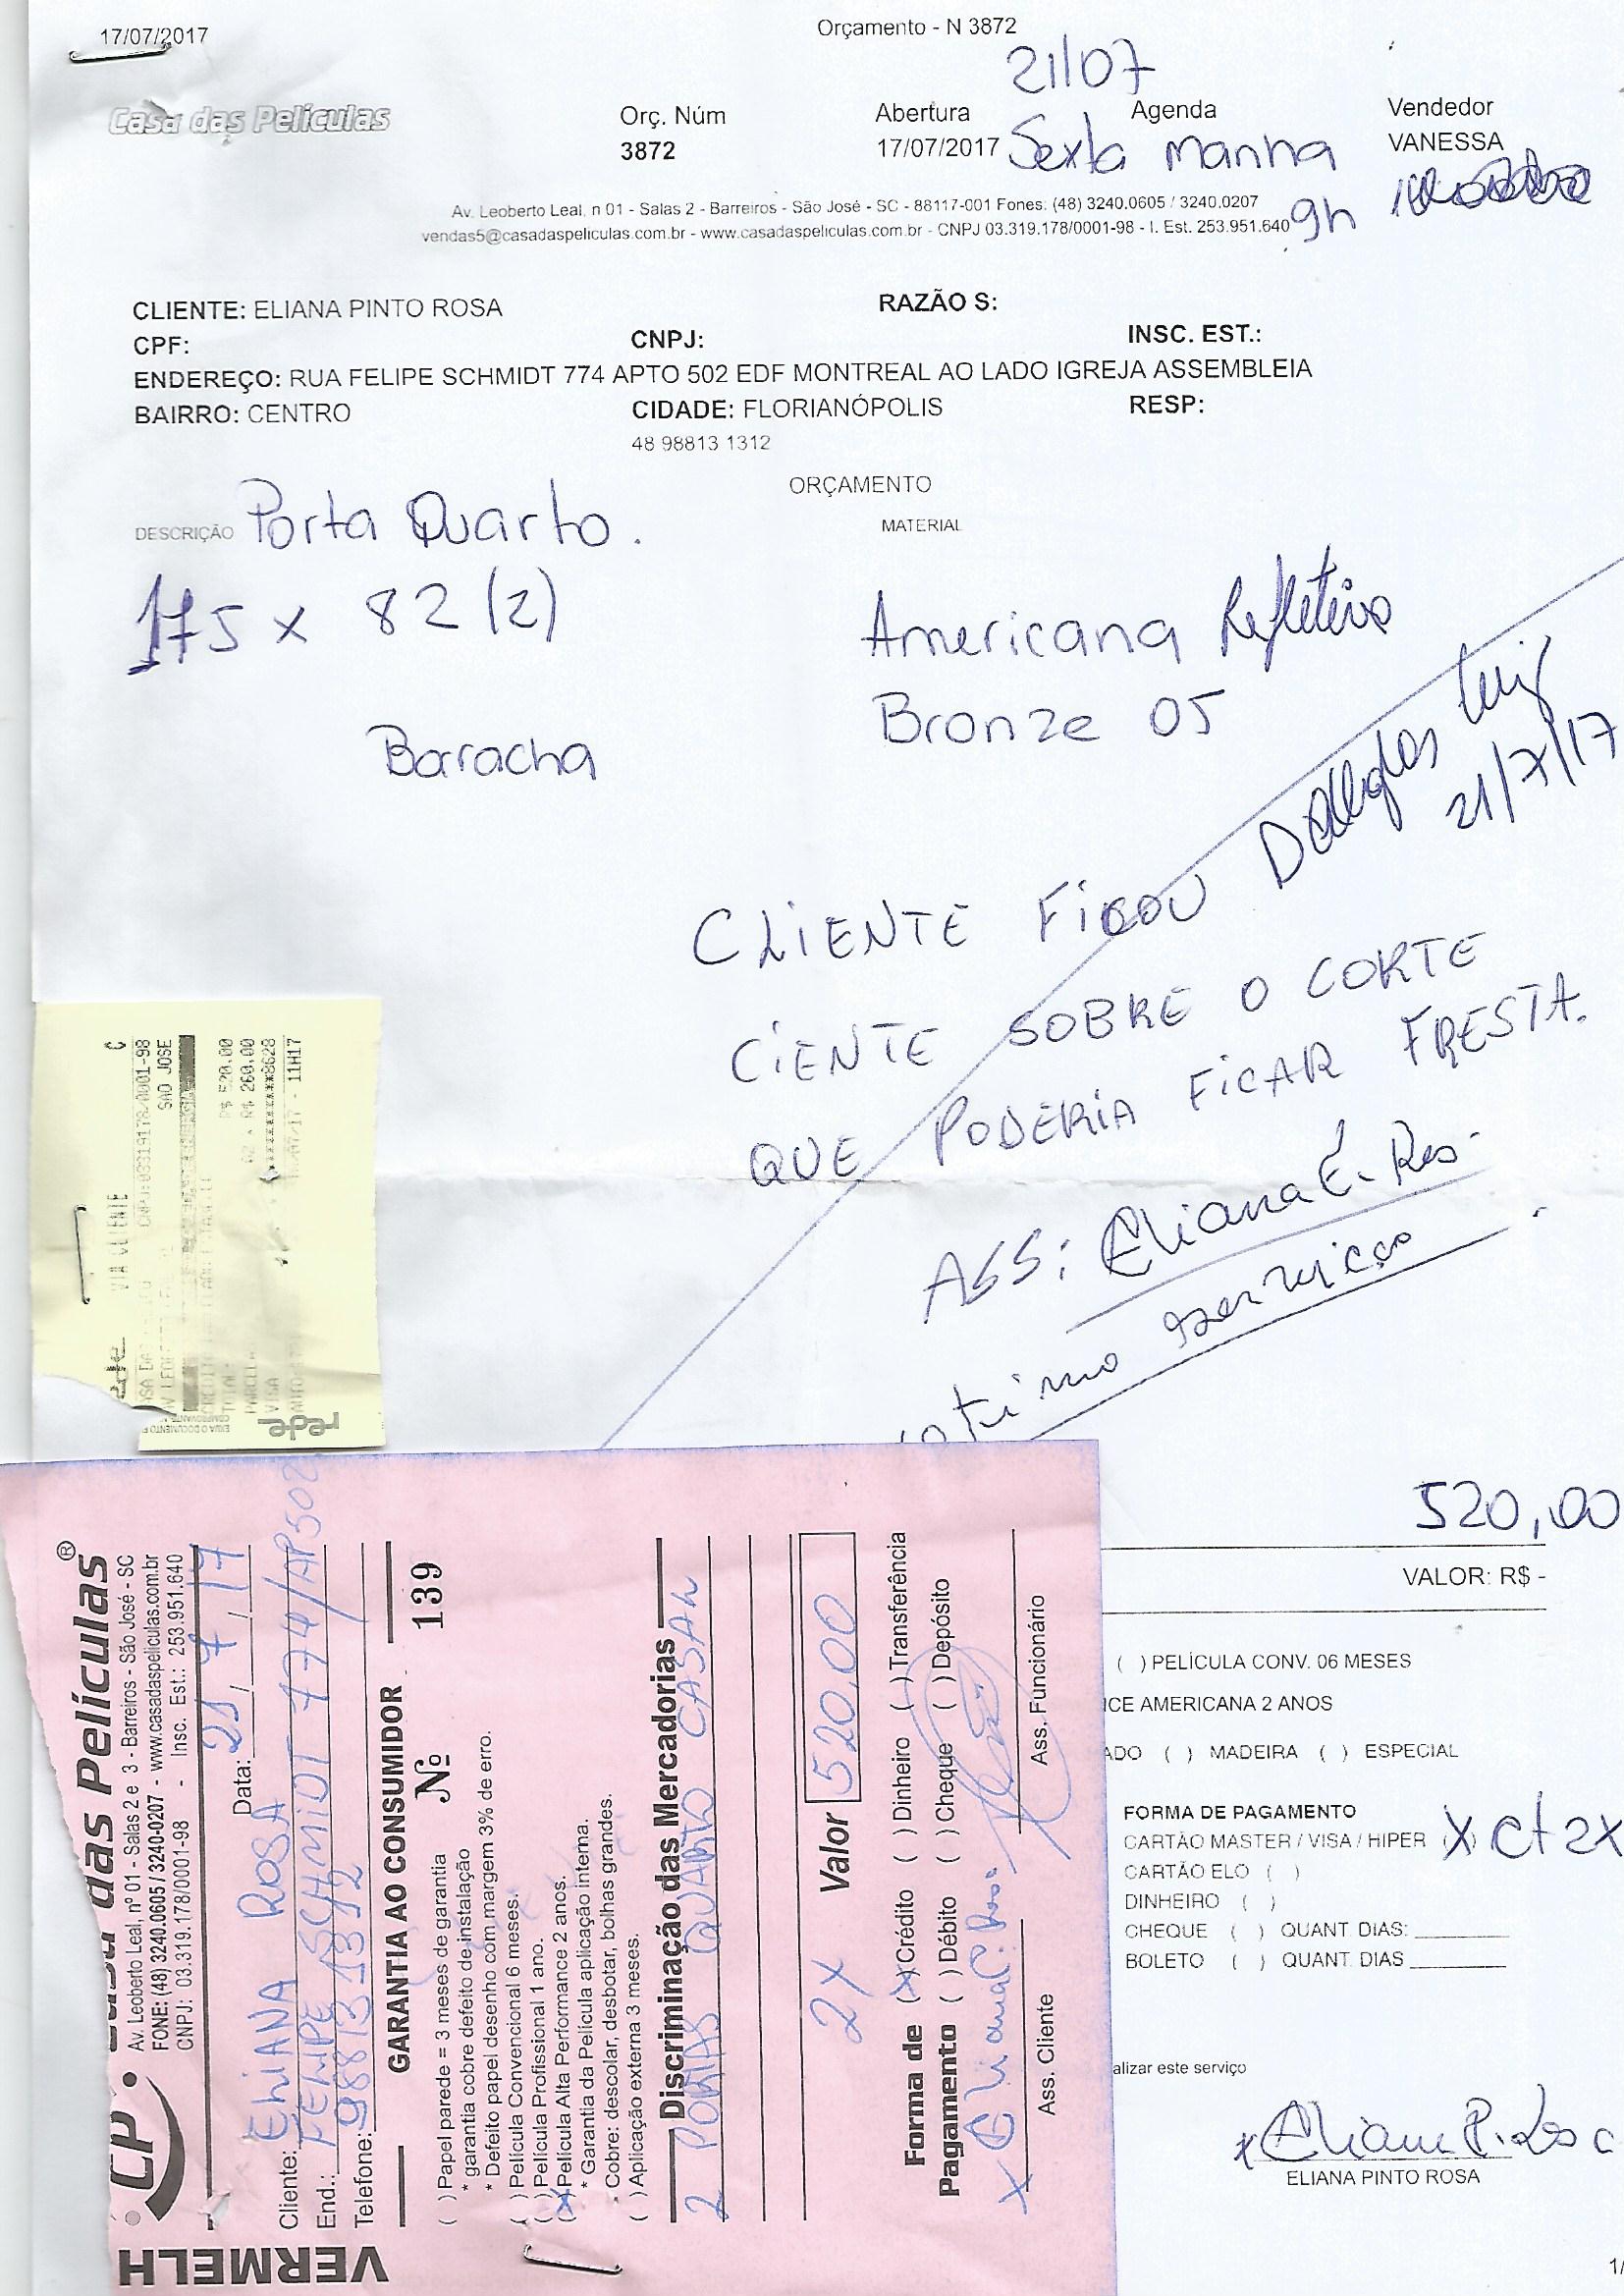 17/07/2017
Orçamento - N 3872
21/07
Casa das Películas
Orç. Núm
Abertura
Agenda
Vendedor
3872
17/07/2017
Sexta Manha
VANESSA
9h
Av. Leoberto Leal, n 01 - Salas 2 - Barreiros - São José - SC - 88117-001 Fones: (48) 3240.0605 / 3240.0207
vendas5@casadaspeliculas.com.br - www.casadaspeliculas.com.br - CNPJ 03.319.178/0001-98 - I. Est. 253.951.640
CLIENTE: ELIANA PINTO ROSA
RAZÃO S:
CPF:
CNPJ:
INSC. EST.:
ENDEREÇO: RUA FELIPE SCHMIDT 774 APTO 502 EDF MONTREAL AO LADO IGREJA ASSEMBLEIA
BAIRRO: CENTRO
CIDADE: FLORIANÓPOLIS
RESP:
48 98813 1312
ORÇAMENTO
DESCRIÇÃO Porta Quarto.
MATERIAL
175 x 82 (2)
Americana Refletivo
Bronze 05
Borracha
Douglas Luiz
21/7/17
CLIENTE FICOU
CIENTE SOBRE O CORTE
QUE PODERIA FICAR FRESTA.
ASS: Eliana
otimo servicço
VIA CLIENTE
C
CNPJ:03319178/0001-98
SAO JOSE
TOTAL: R$ 520.00
PARCELA 02 x R$ 260.00
VISA ************8628
- 11H17
rede
520,00
VALOR: R$ -
( ) PELÍCULA CONV. 06 MESES
NCE AMERICANA 2 ANOS
ADO ( ) MADEIRA ( ) ESPECIAL
FORMA DE PAGAMENTO
CARTÃO MASTER / VISA / HIPER (X) Ct 2x
CARTÃO ELO ( )
DINHEIRO ( )
CHEQUE ( ) QUANT. DIAS:
BOLETO ( ) QUANT. DIAS
alizar este serviço
x Eliana P. Rosa
ELIANA PINTO ROSA
1/
CP Casa das Películas®
Av. Leoberto Leal, nº 01 - Salas 2 e 3 - Barreiros - São José - SC
FONE: (48) 3240.0605 / 3240-0207 - www.casadaspeliculas.com.br
CNPJ: 03.319.178/0001-98 - Insc. Est.: 253.951.640
Data: 21, 7, 17
Cliente: ELIANA ROSA
End.: FELIPE SCHMIDT 774/AP502
Telefone: 98813 1312
GARANTIA AO CONSUMIDOR
Nº 139
( ) Papel parede = 3 meses de garantia
* garantia cobre defeito de instalação
* Defeito papel desenho com margem 3% de erro.
( ) Película Convencional 6 meses.
( ) Película Profissional 1 ano.
(X) Película Alta Performance 2 anos.
* Garantia da Película aplicação interna.
- Cobre: descolar, desbotar, bolhas grandes.
( ) Aplicação externa 3 meses.
Discriminação das Mercadorias
2 PORTAS QUARTO CASAL
2X Valor 520,00
Forma de Pagamento
(X) Crédito ( ) Dinheiro ( ) Transferência
( ) Débito ( ) Cheque ( ) Depósito
x Eliana P. Rosa
Ass. Cliente
Ass. Funcionário
VERMELH